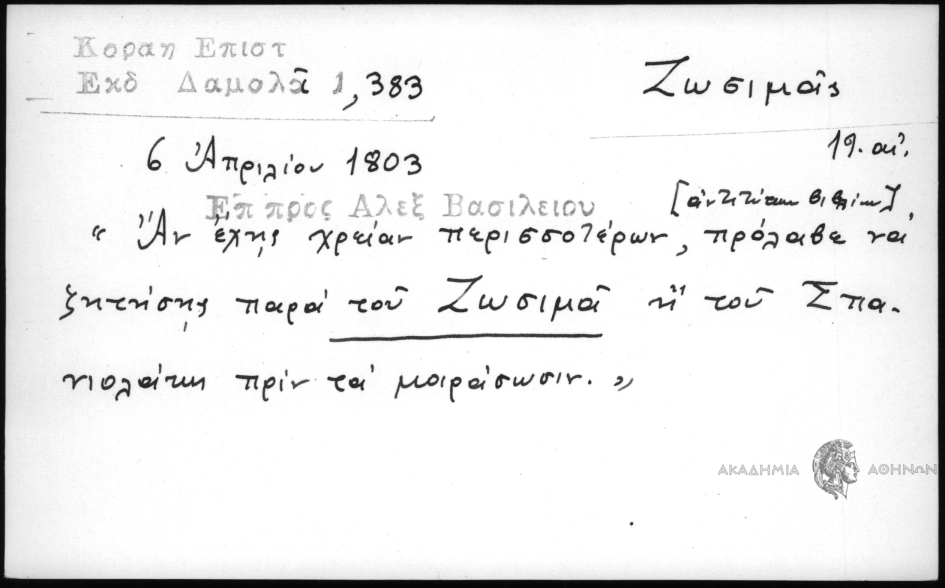 Κοραη Επιστ
Εκδ Δαμολᾶ 1,383
Ζωσιμᾶς
19. αἰ.
6 Ἀπριλίου 1803
Επ προς Αλεξ Βασιλειου
[ἀντιτύπων βιβλίων]
« Ἄν ἔχῃς χρείαν περισσοτέρων, πρόλαβε νά
ζητήσῃς παρά τοῦ Ζωσιμᾶ ἤ τοῦ Σπα-
νιολάκη πρίν τά μοιράσωσιν. »
ΑΚΑΔΗΜΙΑ ΑΘΗΝΩΝ